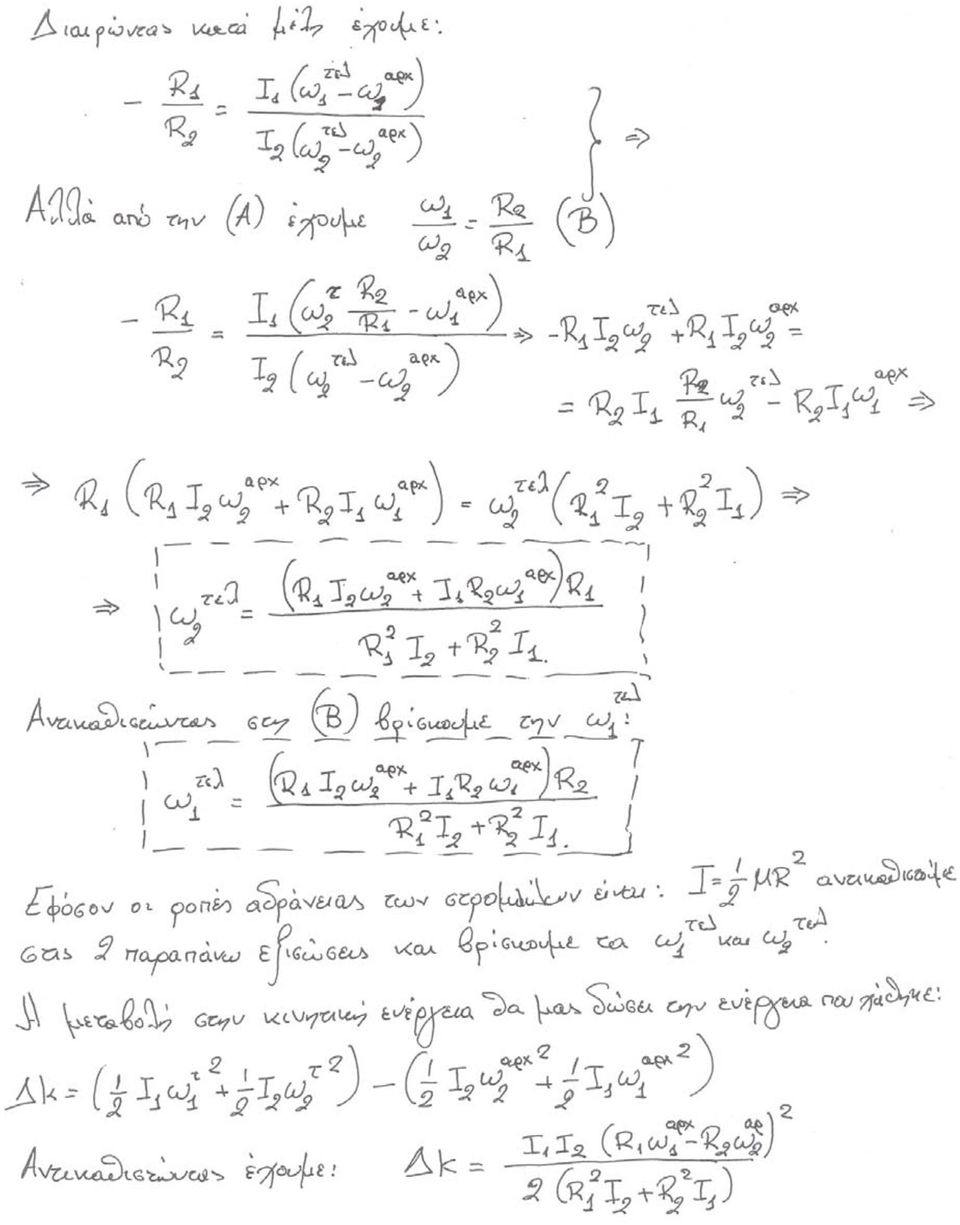 Διαιρώντας κατά μέλη έχουμε:
- R₁/R₂ = I₁(ω₁^τελ - ω₁^αρχ) / I₂(ω₂^τελ - ω₂^αρχ) } ⇒
Αλλά από την (Α) έχουμε ω₁/ω₂ = R₂/R₁ (Β)
- R₁/R₂ = I₁(ω₂^τ R₂/R₁ - ω₁^αρχ) / I₂(ω₂^τελ - ω₂^αρχ) ⇒ -R₁I₂ω₂^τελ + R₁I₂ω₂^αρχ =
= R₂I₁ R₂/R₁ ω₂^τελ - R₂I₁ω₁^αρχ ⇒
⇒ R₁(R₁I₂ω₂^αρχ + R₂I₁ω₁^αρχ) = ω₂^τελ(R₁²I₂ + R₂²I₁) ⇒
⇒ ω₂^τελ = (R₁I₂ω₂^αρχ + I₁R₂ω₁^αρχ)R₁ / R₁²I₂ + R₂²I₁.
Αντικαθιστώντας στη (Β) βρίσκουμε την ω₁^τελ:
ω₁^τελ = (R₁I₂ω₂^αρχ + I₁R₂ω₁^αρχ)R₂ / R₁²I₂ + R₂²I₁.
Εφόσον οι ροπές αδράνειας των στροφάλων είναι: I = 1/2 MR² αντικαθιστούμε
στις 2 παραπάνω εξισώσεις και βρίσκουμε τα ω₁^τελ και ω₂^τελ.
Η μεταβολή στην κινητική ενέργεια θα μας δώσει την ενέργεια που χάθηκε:
Δk = (1/2 I₁ω₁^τ² + 1/2 I₂ω₂^τ²) - (1/2 I₂ω₂^αρχ² + 1/2 I₁ω₁^αρχ²)
Αντικαθιστώντας έχουμε: Δk = I₁I₂(R₁ω₁^αρχ - R₂ω₂^αρ)² / 2(R₁²I₂ + R₂²I₁)